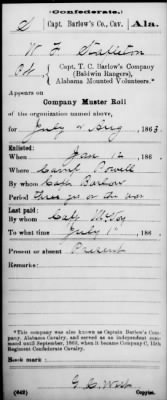 (Confederate.)
S Capt. Barlow's Co., Cav. Ala.
W F Stallton
Pvt, Capt. T. C. Barlow's Company
(Baldwin Rangers),
Alabama Mounted Volunteers.*
Appears on
Company Muster Roll
of the organization named above,
for July & Aug, 1863.
Enlisted:
When Jan 12, 186
Where Camp Powell
By whom Capt Barlow
Period three yrs or the war
Last paid:
By whom Capt McVoy
To what time July 1st, 186
Present or absent Present
Remarks:
*This company was also known as Captain Barlow's Company, Alabama Cavalry, and served as an independent command until September, 1863, when it became Company C, 15th Regiment Confederate Cavalry.
Book mark:
(642) Copyist.